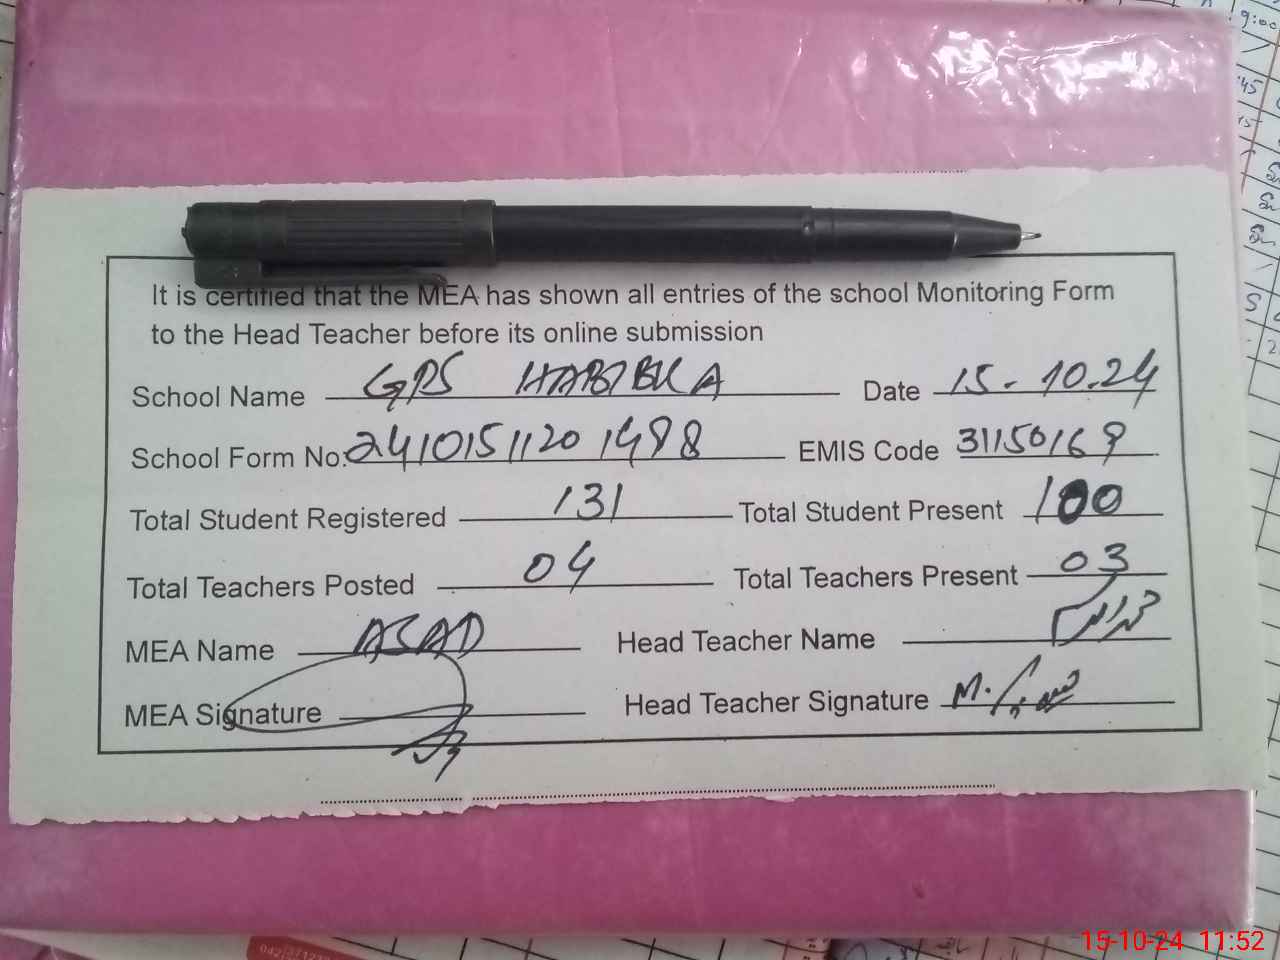 It is certified that the MEA has shown all entries of the school Monitoring Form
to the Head Teacher before its online submission
School Name GPS HABIBKA Date 15-10.24
School Form No: 2410151120 1498 EMIS Code 31150169
Total Student Registered 131 Total Student Present 100
Total Teachers Posted 04 Total Teachers Present 03
MEA Name ASAD Head Teacher Name
MEA Signature Head Teacher Signature M.
15-10-24 11:52